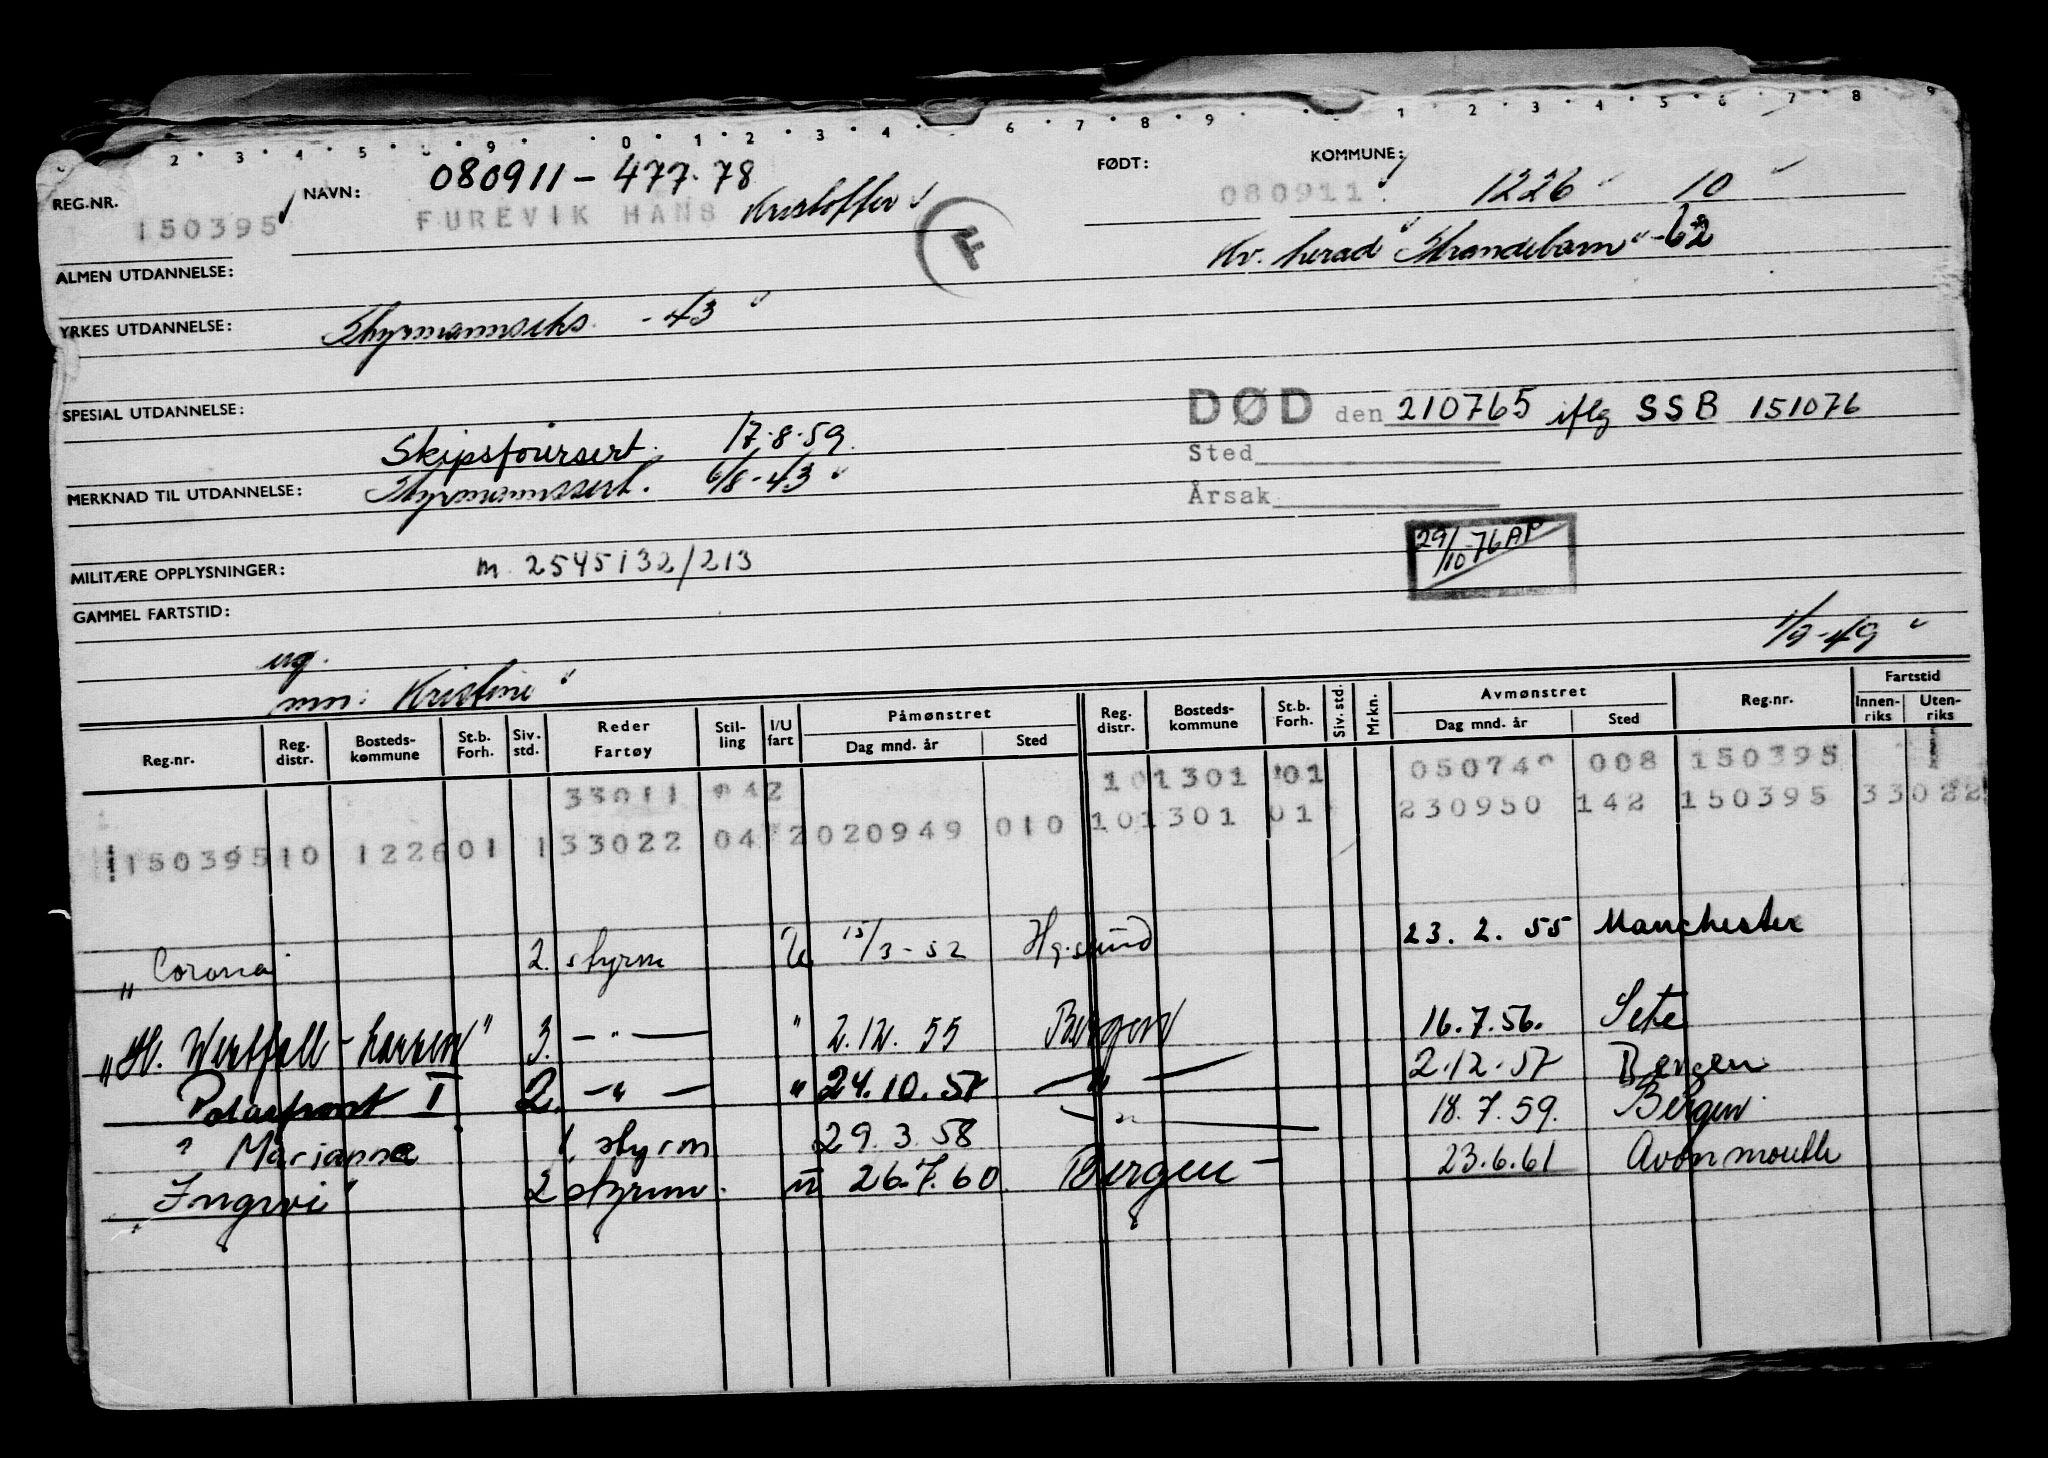 2 3 4 5 9 0 1 2 3 4 6 7 8 9 1 2 3 4 5 6 7 8 9
REG.NR. 150395 NAVN: 080911-477.78 FØDT: KOMMUNE:
FUREVIK HANS Kristoffer F 080911 1226 10
Kv. herad "Strandebarm" -62
ALMEN UTDANNELSE:
YRKES UTDANNELSE: Styrmannseks. -43
SPESIAL UTDANNELSE:
DØD den 210765 iflg SSB 151076
Skipsførersert. 17.8.59.
Sted
MERKNAD TIL UTDANNELSE: Styrmannssert. 6/8-43
Årsak
29/10-76 AP
MILITÆRE OPPLYSNINGER: m. 2545132/213
GAMMEL FARTSTID:
1/9-49
mn: Kristine
Reg.nr. Reg. distr. Bosteds-kommune St.b. Forh. Siv. std. Reder Fartøy Stil-ling I/U fart Påmønstret Dag mnd. år Sted Reg. distr. Bosteds-kommune St.b. Forh. Siv. std. Mrkn. Avmønstret Dag mnd. år Sted Reg.nr. Fartstid Innen-riks Uten-riks
33011 042 101301 01 050749 008 150395
150395 10 1226 01 1 33022 04 2 020949 010 101301 01 230950 142 150395 33022
"Corona 2. styrm U 15/3-52 Hg.sund 23.2.55 Manchester
"Hl. Westfall-Larsen" 3. -"- " 2.12.55 Bergen 16.7.56. Sete
Polarfront I 2. -"- " 24.10.57 -"- 2.12.57 Bergen
" Marianne 1. styrm 29.3.58 -"- 18.7.59. Bergen
"Ingwi" 2 styrm. U 26.7.60. Bergen 23.6.61 Avonmouth